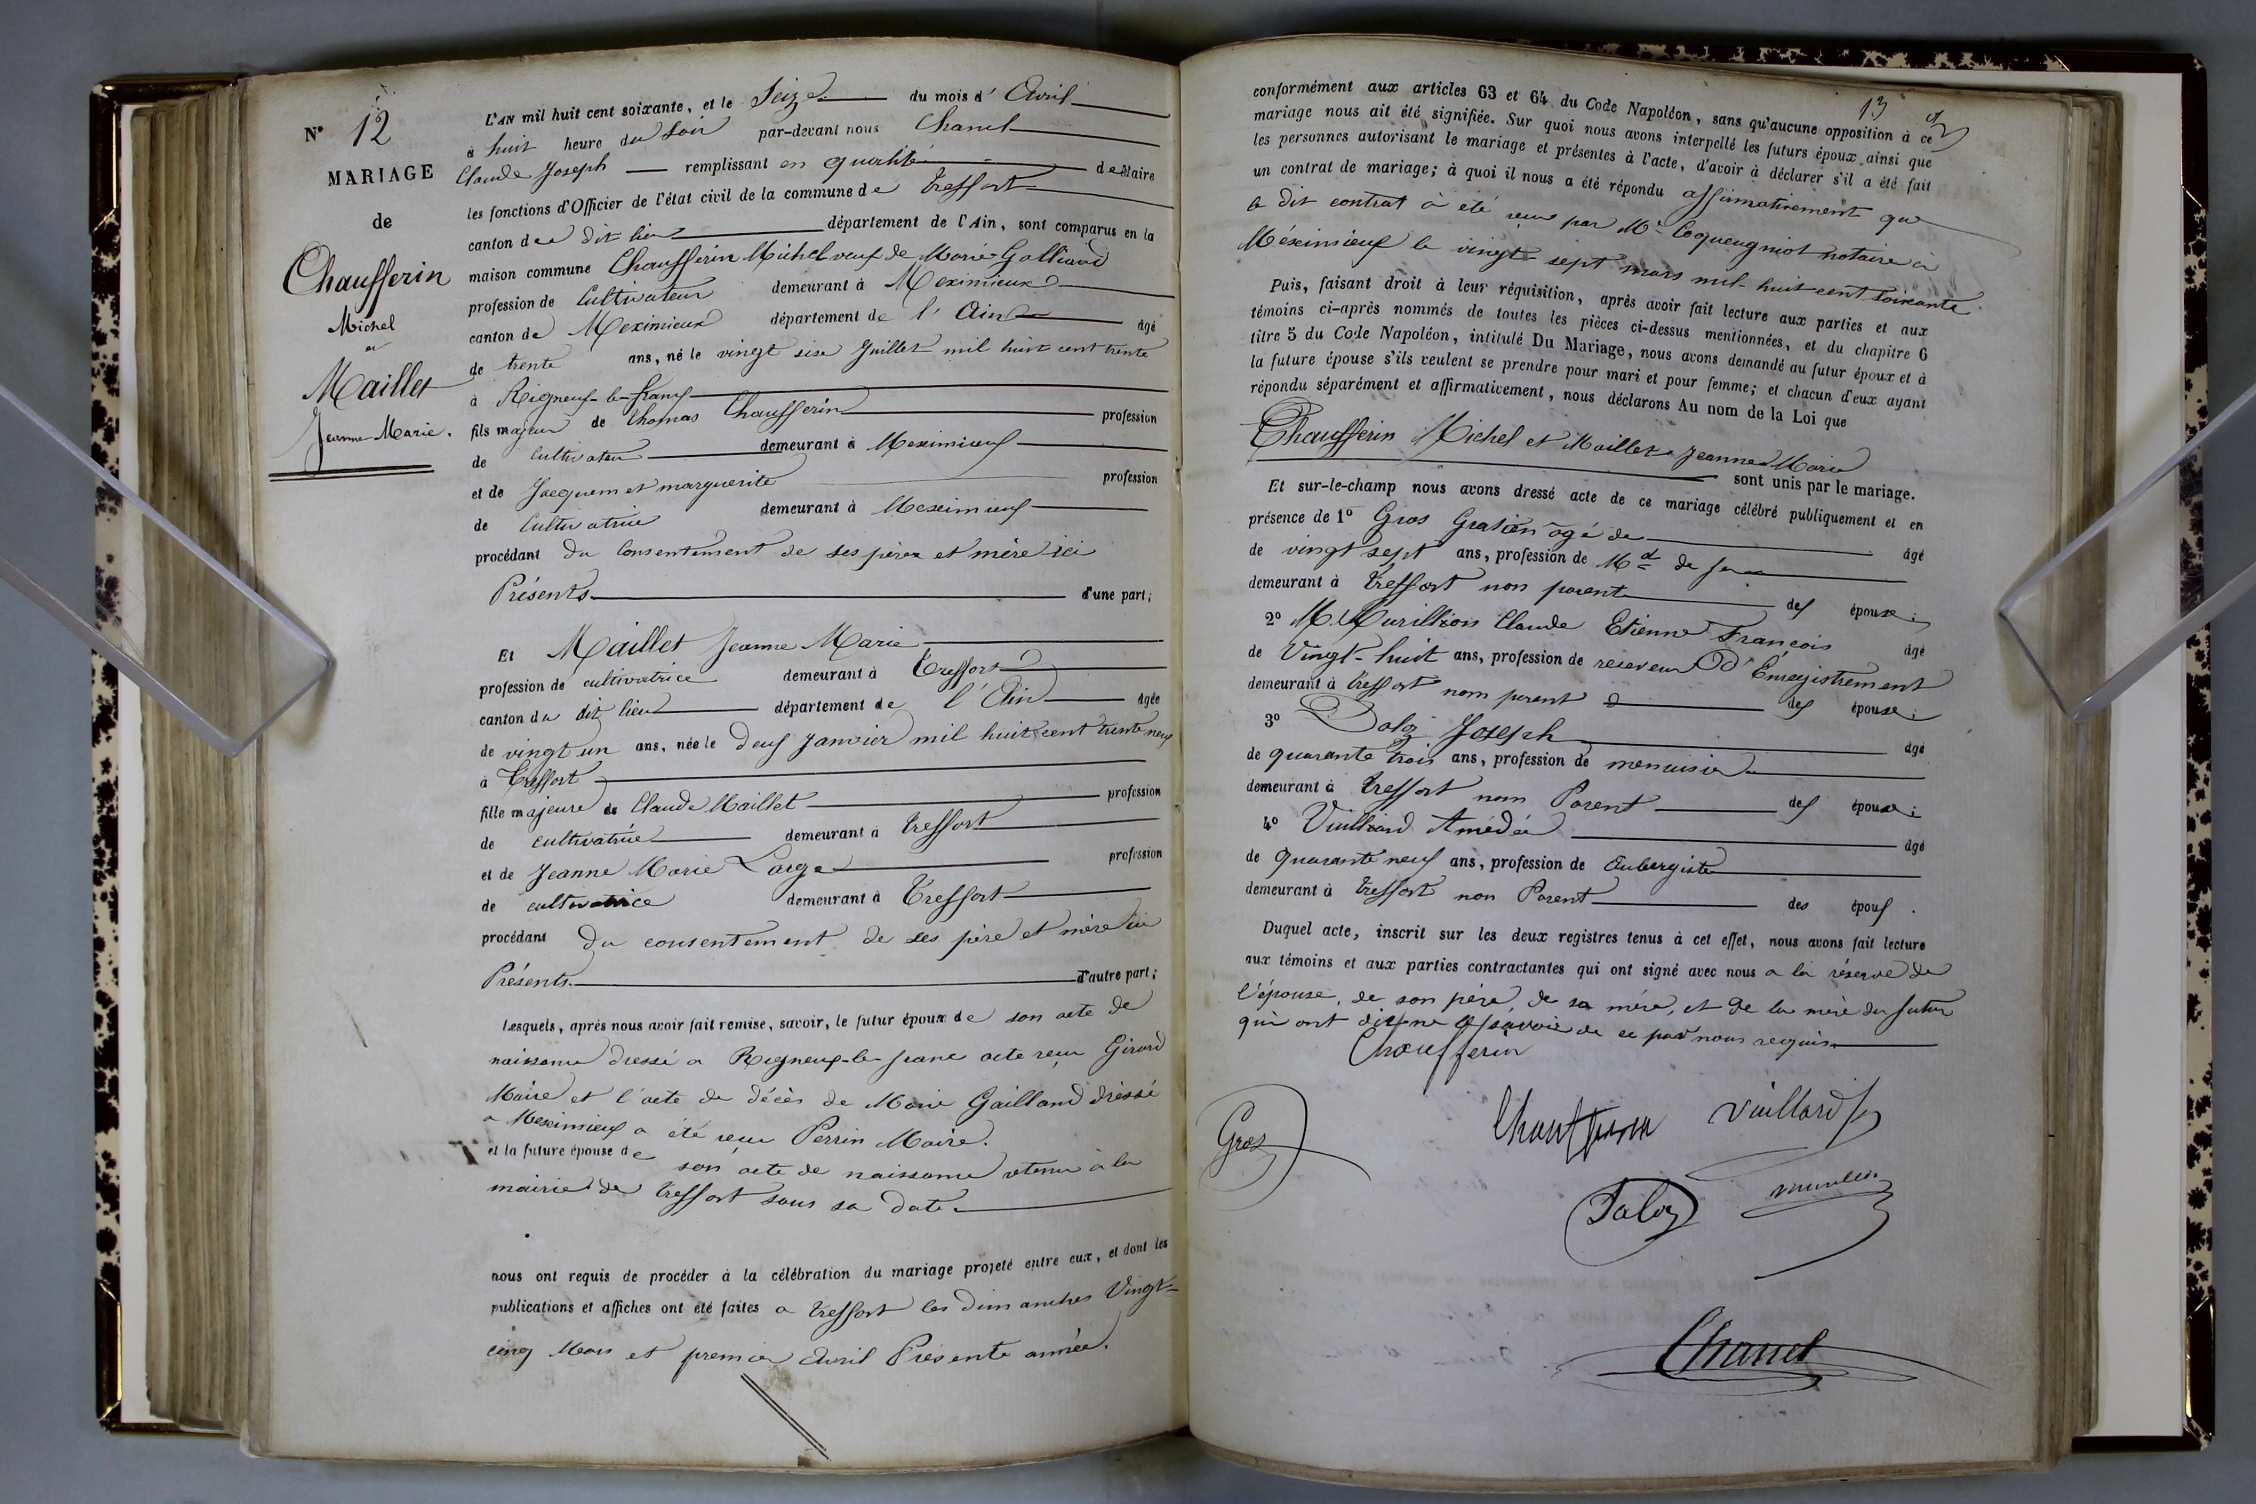 N° 12
MARIAGE
de
Chaufferin
Michel
et
Maillet
Jeanne Marie.
L'AN mil huit cent soixante, et le Seize du mois d'Avril
à huit heure du Soir par-devant nous Chanel
Claude Joseph remplissant en qualité de Maire
les fonctions d'Officier de l'état civil de la commune de Treffort
canton du dit lieu département de l'Ain, sont comparus en la
maison commune Chaufferin Michel veuf de Marie Galliand
profession de Cultivateur demeurant à Meximieux
canton de Meximieux département de l'Ain âgé
de trente ans, né le vingt six Juillet mil huit cent trente
à Rigneux-le-franc
fils majeur de Thomas Chaufferin profession
de Cultivateur demeurant à Meximieux
et de Jacquemet marguerite profession
de Cultivatrice demeurant à Meximieux
procédant du Consentement de ses père et mère ici
Présents d'une part;
Et Maillet Jeanne Marie
profession de cultivatrice demeurant à Treffort
canton du dit lieu département de l'Ain âgée
de vingt un ans, née le deux Janvier mil huit cent trente neuf
à Treffort
fille majeure de Claude Maillet profession
de cultivatrice demeurant à Treffort
et de Jeanne Marie Large profession
de cultivatrice demeurant à Treffort
procédant du consentement de ses père et mère ici
Présents d'autre part;
Lesquels, après nous avoir fait remise, savoir, le futur époux de son acte de
naissance dressé a Rigneux-le-franc acte reçu Girard
Maire et l'acte de décès de Marie Gailland dressé
a Meximieux a été reçu Perrin Maire.
et la future épouse de son acte de naissance retenu à la
mairie de Treffort sous sa date.
nous ont requis de procéder à la célébration du mariage projeté entre eux, et dont les
publications et affiches ont été faites a Treffort les dimanches Vingt-
cinq Mars et premier Avril Présente année.
13
conformément aux articles 63 et 64 du Code Napoléon, sans qu'aucune opposition à ce
mariage nous ait été signifiée. Sur quoi nous avons interpellé les futurs époux ainsi que
les personnes autorisant le mariage et présentes à l'acte, d'avoir à déclarer s'il a été fait
un contrat de mariage; à quoi il nous a été répondu affirmativement que
le dit contrat à été reçu par Me Coqueugniot notaire à
Méximieux le vingt-sept mars mil huit cent soixante.
Puis, faisant droit à leur réquisition, après avoir fait lecture aux parties et aux
témoins ci-après nommés de toutes les pièces ci-dessus mentionnées, et du chapitre 6
titre 5 du Code Napoléon, intitulé Du Mariage, nous avons demandé au futur époux et à
la future épouse s'ils veulent se prendre pour mari et pour femme; et chacun d'eux ayant
répondu séparément et affirmativement, nous déclarons Au nom de la Loi que
Chaufferin Michel et Maillet Jeanne Marie
sont unis par le mariage.
Et sur-le-champ nous avons dressé acte de ce mariage célébré publiquement et en
présence de 1° Gros Gratien âgé de âgé
de vingt sept ans, profession de Md de fer
demeurant à Treffort non parent des époux;
2° M. Murillion Claude Etienne François âgé
de Vingt-huit ans, profession de receveur d'Enregistrement
demeurant à Treffort nom parent des époux;
3° Daloz Joseph âgé
de quarante trois ans, profession de menuisier
demeurant à Treffort nom Parent des époux;
4° Vuilliard Amédée âgé
de Quarante neuf ans, profession de Aubergiste
demeurant à Treffort non Parent des époux.
Duquel acte, inscrit sur les deux registres tenus à cet effet, nous avons fait lecture
aux témoins et aux parties contractantes qui ont signé avec nous a la réserve de
l'épouse, de son père, de sa mère, et de la mère du futur
qui ont dit ne savoir de ce par nous requis
Chaufferin
Chaufferin Vuillard
Gros
Daloz
Chanel